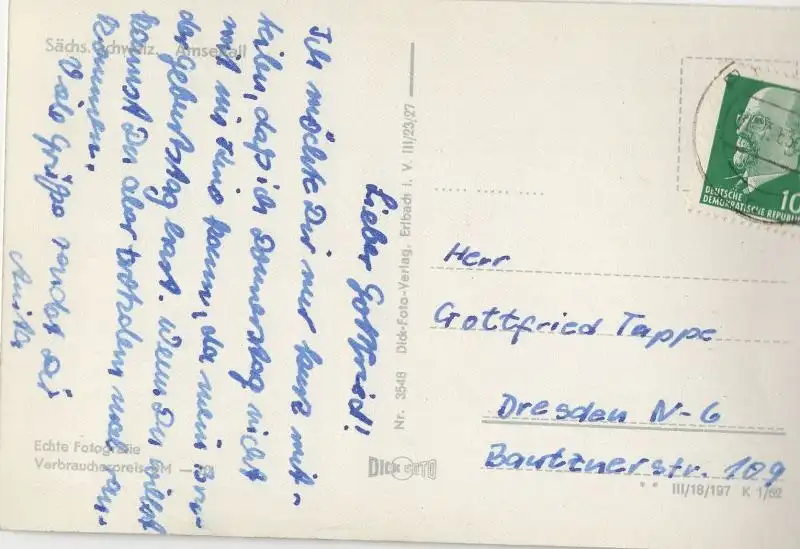 Sächs. Schweiz. Amselfall
Lieber Gottfried!
Ich möchte Dir nur kurz mit-
teilen, daß ich Donnerstag nicht
mit ins Kino kann, da mein Bru-
der Geburtstag hat. Wenn Du willst
kannst Du aber trotzdem mal ran-
kommen.
Viele Grüße sendet Dir
Anita
Echte Fotografie
Verbraucherpreis DM
Nr. 3548 Dick-Foto-Verlag, Erlbach i. V. III/23/27
DICK FOTO
DEUTSCHE
DEMOKRATISCHE REPUBLIK
10
Herr
Gottfried Tappe
Dresden N-6
Bautznerstr. 109
III/18/197 K 1/62